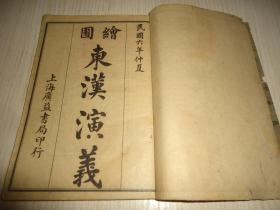 民國六年仲夏
繪圖
東漢演義
上海廣益書局印行